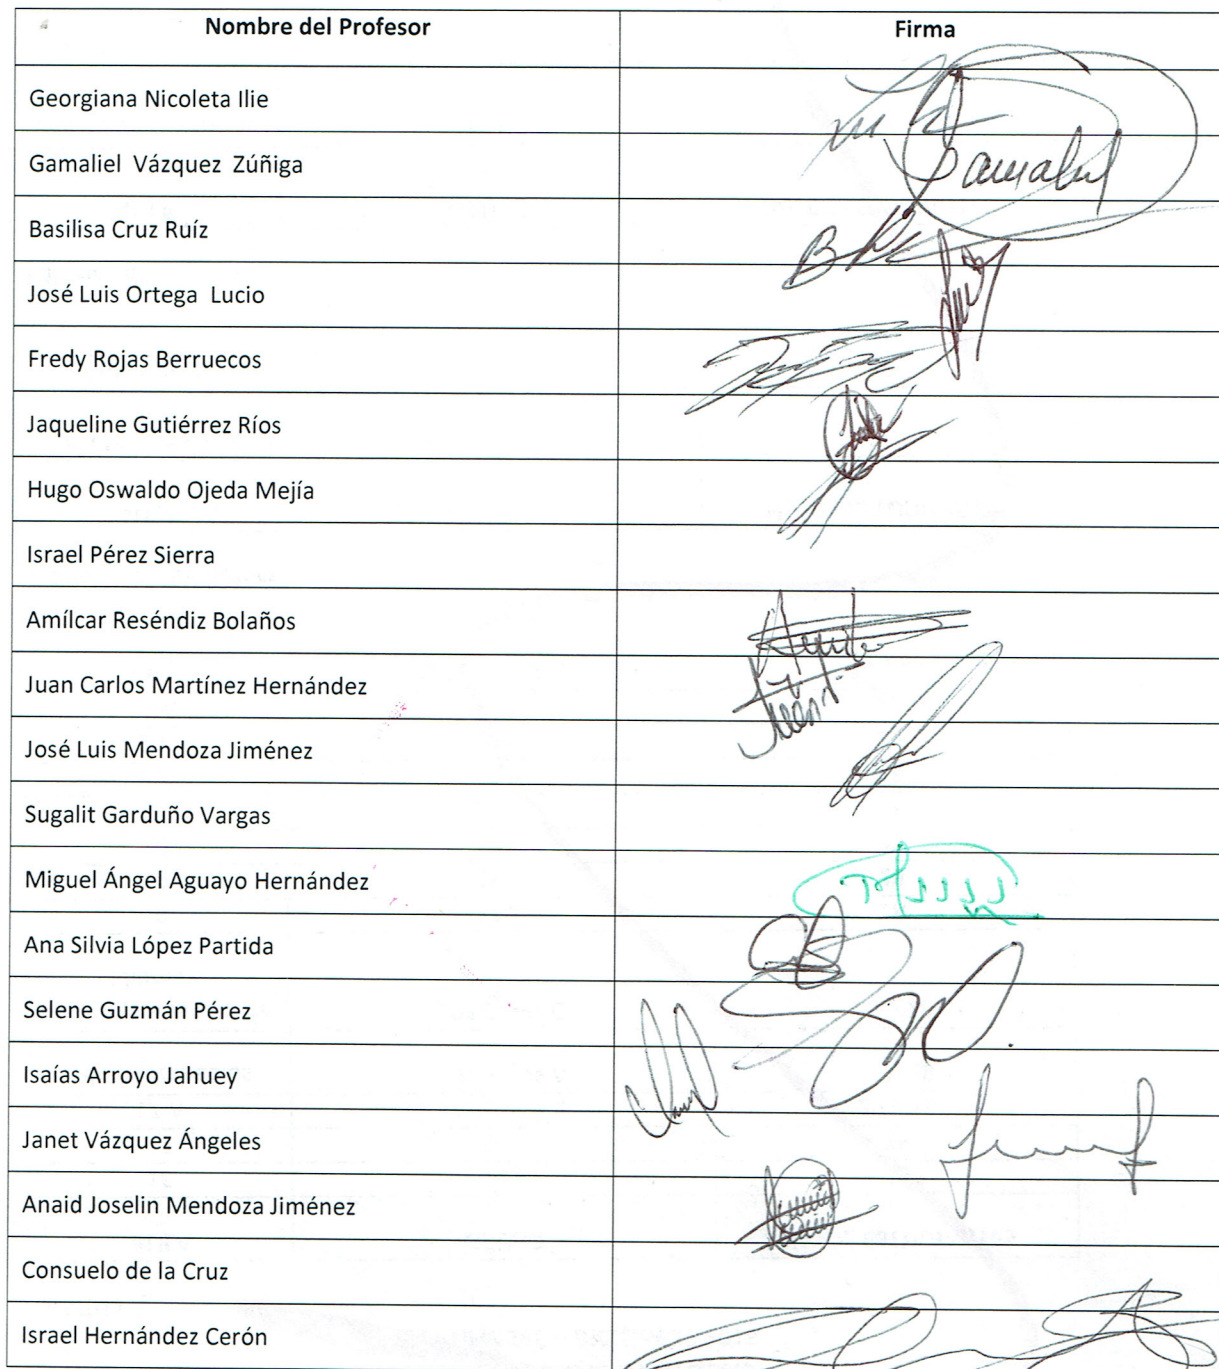 Nombre del Profesor Firma
Georgiana Nicoleta Ilie
Gamaliel Vázquez Zúñiga
Basilisa Cruz Ruíz
José Luis Ortega Lucio
Fredy Rojas Berruecos
Jaqueline Gutiérrez Ríos
Hugo Oswaldo Ojeda Mejía
Israel Pérez Sierra
Amílcar Reséndiz Bolaños
Juan Carlos Martínez Hernández
José Luis Mendoza Jiménez
Sugalit Garduño Vargas
Miguel Ángel Aguayo Hernández
Ana Silvia López Partida
Selene Guzmán Pérez
Isaías Arroyo Jahuey
Janet Vázquez Ángeles
Anaid Joselin Mendoza Jiménez
Consuelo de la Cruz
Israel Hernández Cerón